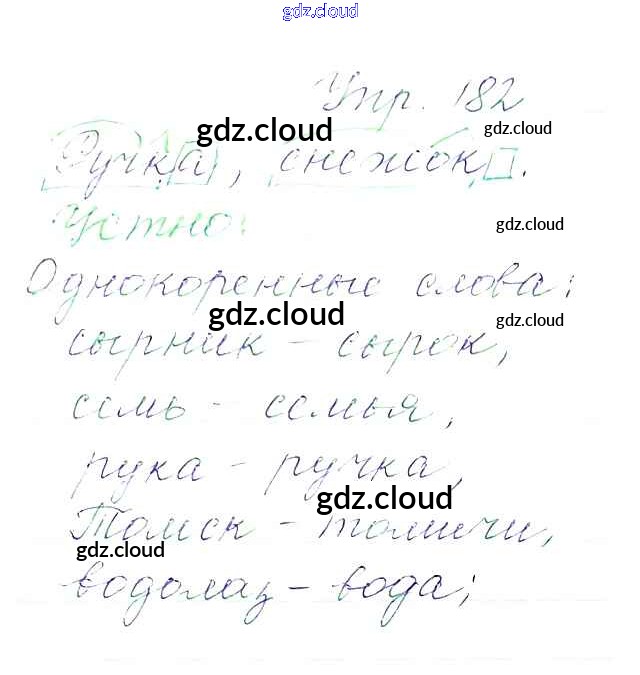 gdz.cloud
Упр. 182
gdz.cloud gdz.cloud
Ручка, снежок.
Устно: gdz.cloud
Однокоренные слова:
gdz.cloud gdz.cloud
сырник - сырок,
семь - семья,
рука - ручка,
gdz.cloud
Томск - томичи,
gdz.cloud
водолаз - вода;